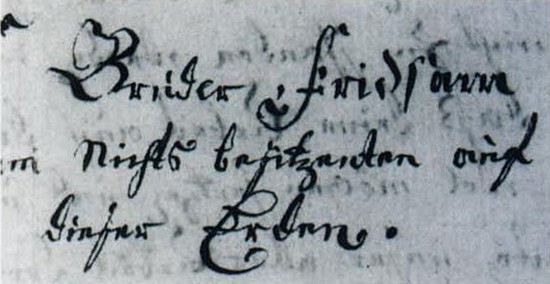 Bruder Fridsam
Nichts besitzenten auf
dieser Erden.